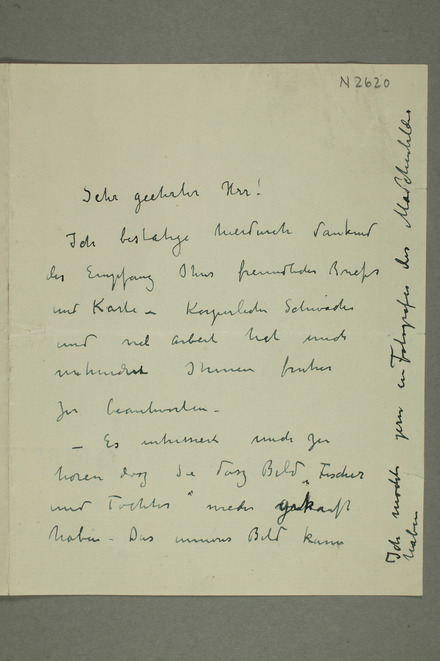 N2620
Sehr geehrter Herr!
Ich bestätige hierdurch dankend
des Empfang Ihres freundliches Briefs
und Karte – Korperliche Schwäche
und viel arbeit hat mich
verhindert Ihnen früher
zu beantworten –
– Es interessiert mich zu
horen dasz Sie dasz Bild „Fischer
und Tochter" wieder gekauft
haben – Das immense Bild kann
Ich mochte gern ein Fotografie des
haben